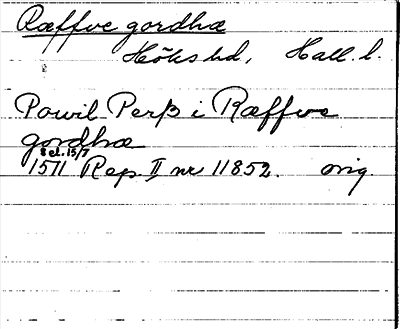 Ræffve gordhæ
Höks hd, Hall. l.
Powil Perß i Ræffwe
gordhæ
8 el. 15/7
1511 Rep. II nr 11852. orig.